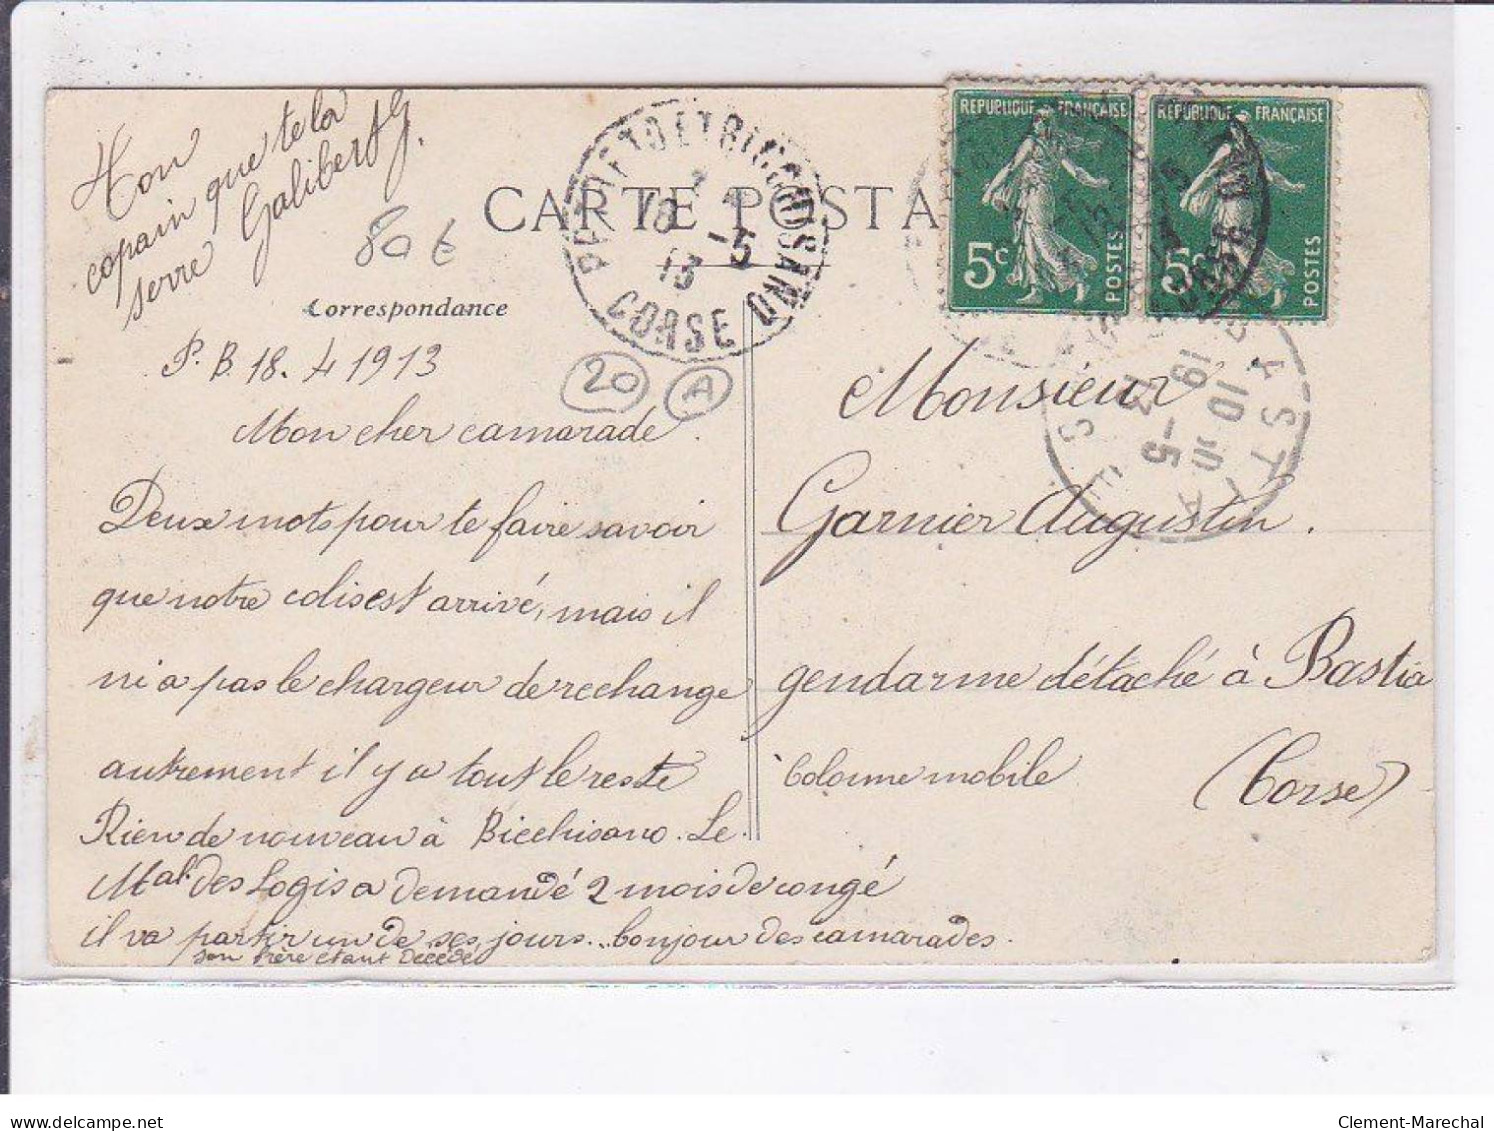 Ton
copain que te la
serre Galibert G.
80 €
CARTE POSTA
Correspondance
P. B. 18. 4 1913
20 A
Mon cher camarade.
Deux mots pour te faire savoir
que notre colis est arrivé, mais il
ni a pas le chargeur de rechange
autrement il y a tout le reste
Rien de nouveau à Bicchisano. Le
Mal. des Logis a demandé 2 mois de congé
il va partir un de ses jours... bonjour des camarades.
son frère étant décédé
PETRETO ET BICCHISANO
18 -5
13
CORSE
REPUBLIQUE FRANÇAISE
5c POSTES
REPUBLIQUE FRANÇAISE
5c POSTES
10 50
19 -5
13
Monsieur
Garnier Augustin.
gendarme détaché à Bastia
Colonne mobile (Corse)
Clement-Marechal
delcampe.net